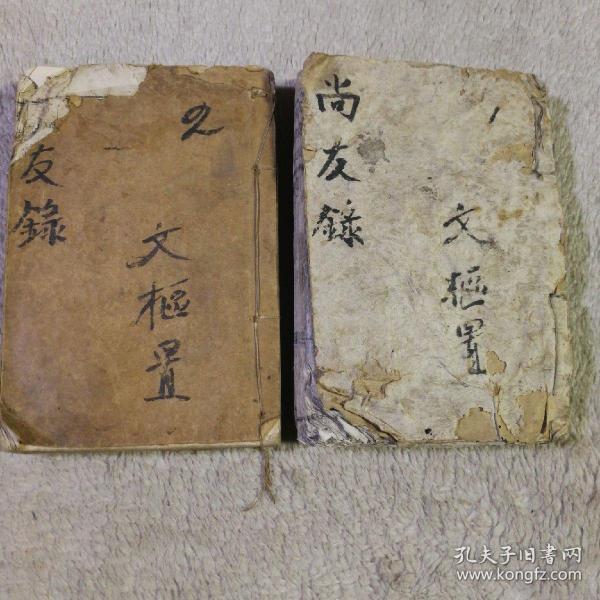 友錄
2
文樞置
尚友錄
1
文樞置
孔夫子旧書网
www.kongfz.com